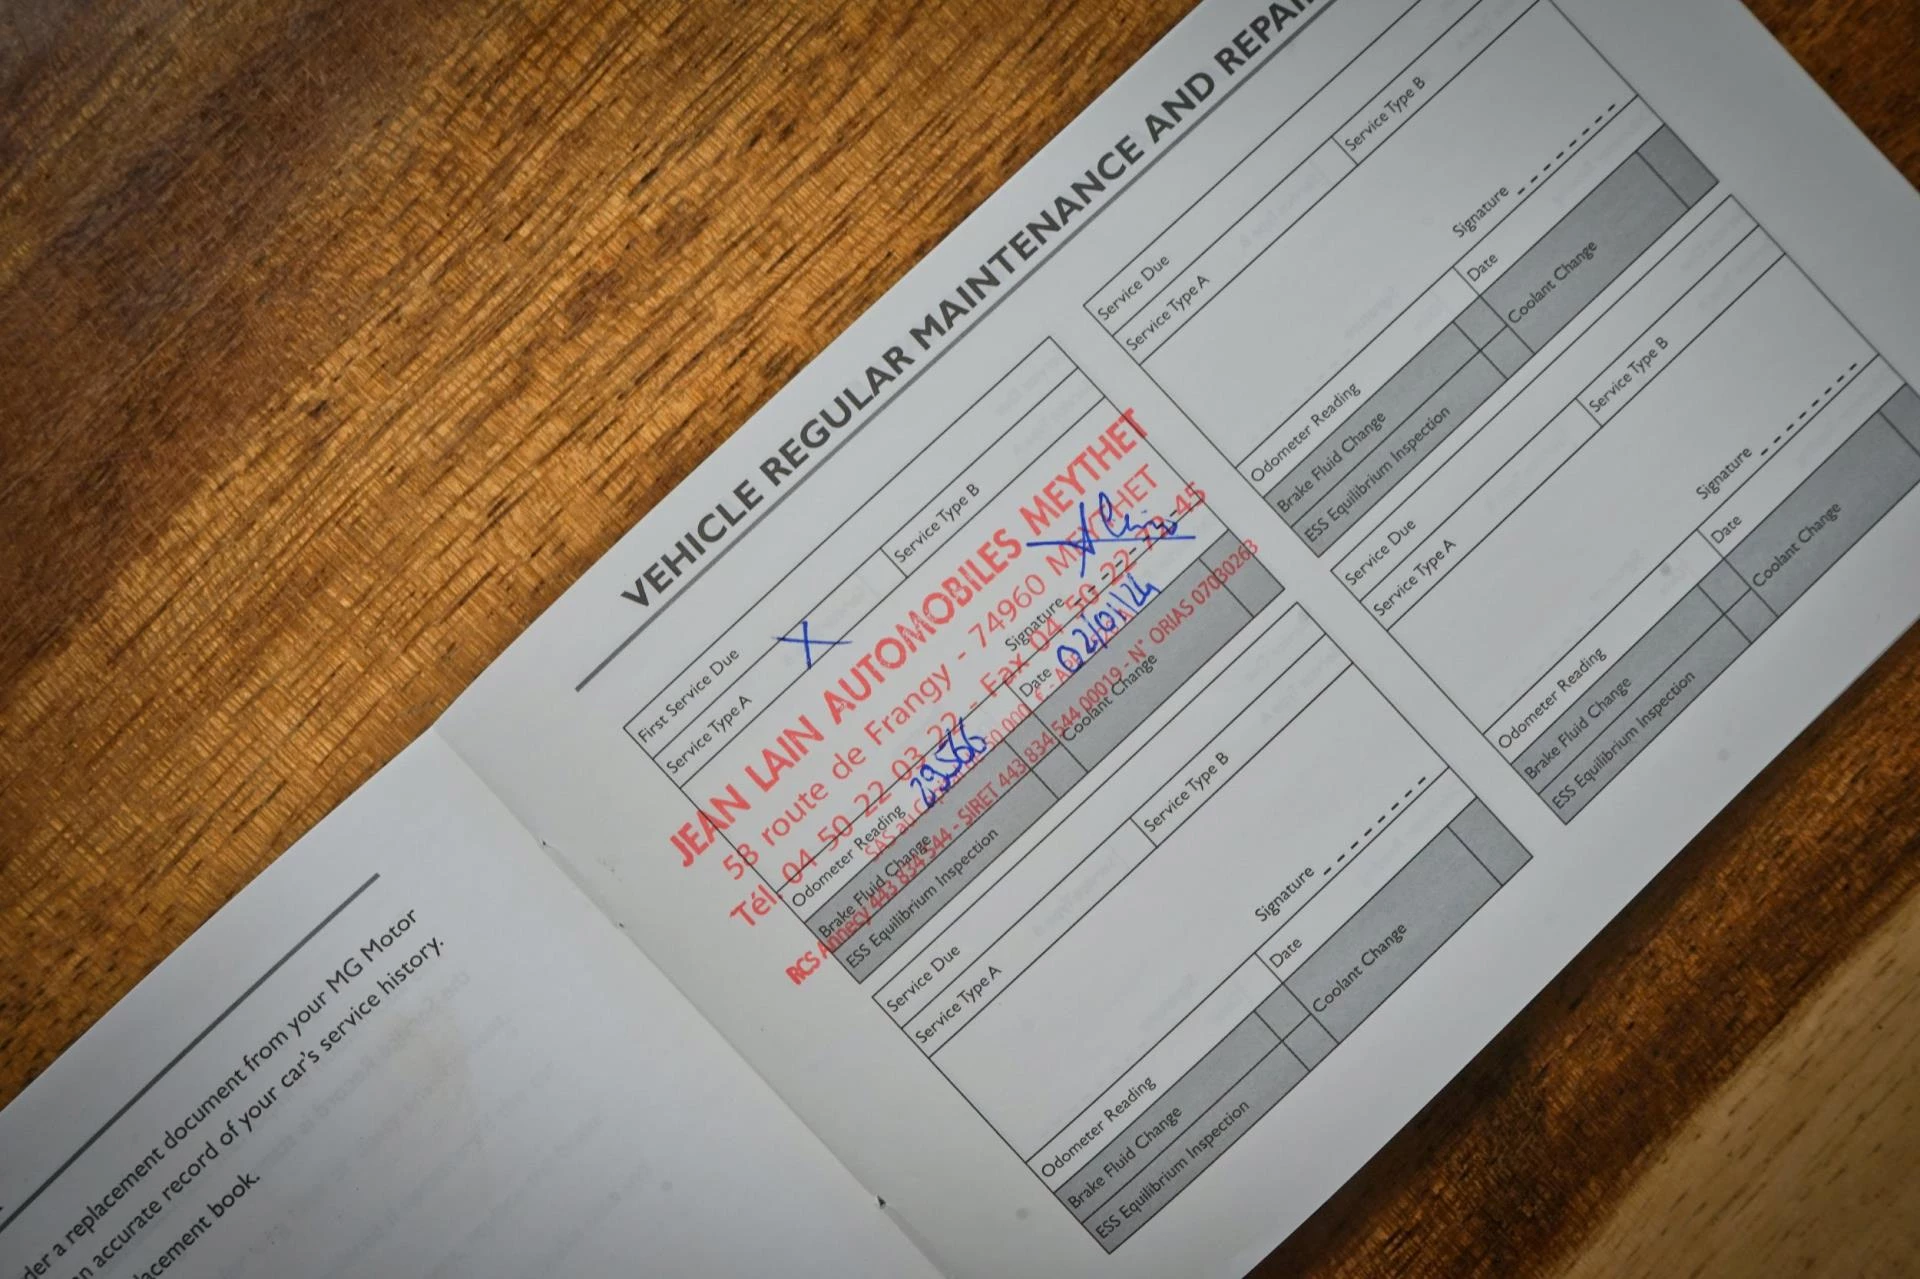 der a replacement document from your MG Motor
an accurate record of your car's service history.
lacement book.
VEHICLE REGULAR MAINTENANCE AND REPAI
First Service Due
Service Type A X Service Type B
JEAN LAIN AUTOMOBILES MEYTHET
58 route de Frangy - 74960 MEYTHET
Tél. 04 50 22 03 22 - Fax 04 50 22 72 45
SAS au
RCS Annecy 443 834 544 - SIRET 443 834 544 00019 - N° ORIAS 07030263
Signature
Odometer Reading 29566 Date 02/01/24
Brake Fluid Change Coolant Change
ESS Equilibrium Inspection
Service Due
Service Type A Service Type B
Signature
Odometer Reading Date
Brake Fluid Change Coolant Change
ESS Equilibrium Inspection
Service Due
Service Type A Service Type B
Signature
Odometer Reading Date
Brake Fluid Change Coolant Change
ESS Equilibrium Inspection
Service Due
Service Type A Service Type B
Signature
Odometer Reading Date
Brake Fluid Change Coolant Change
ESS Equilibrium Inspection